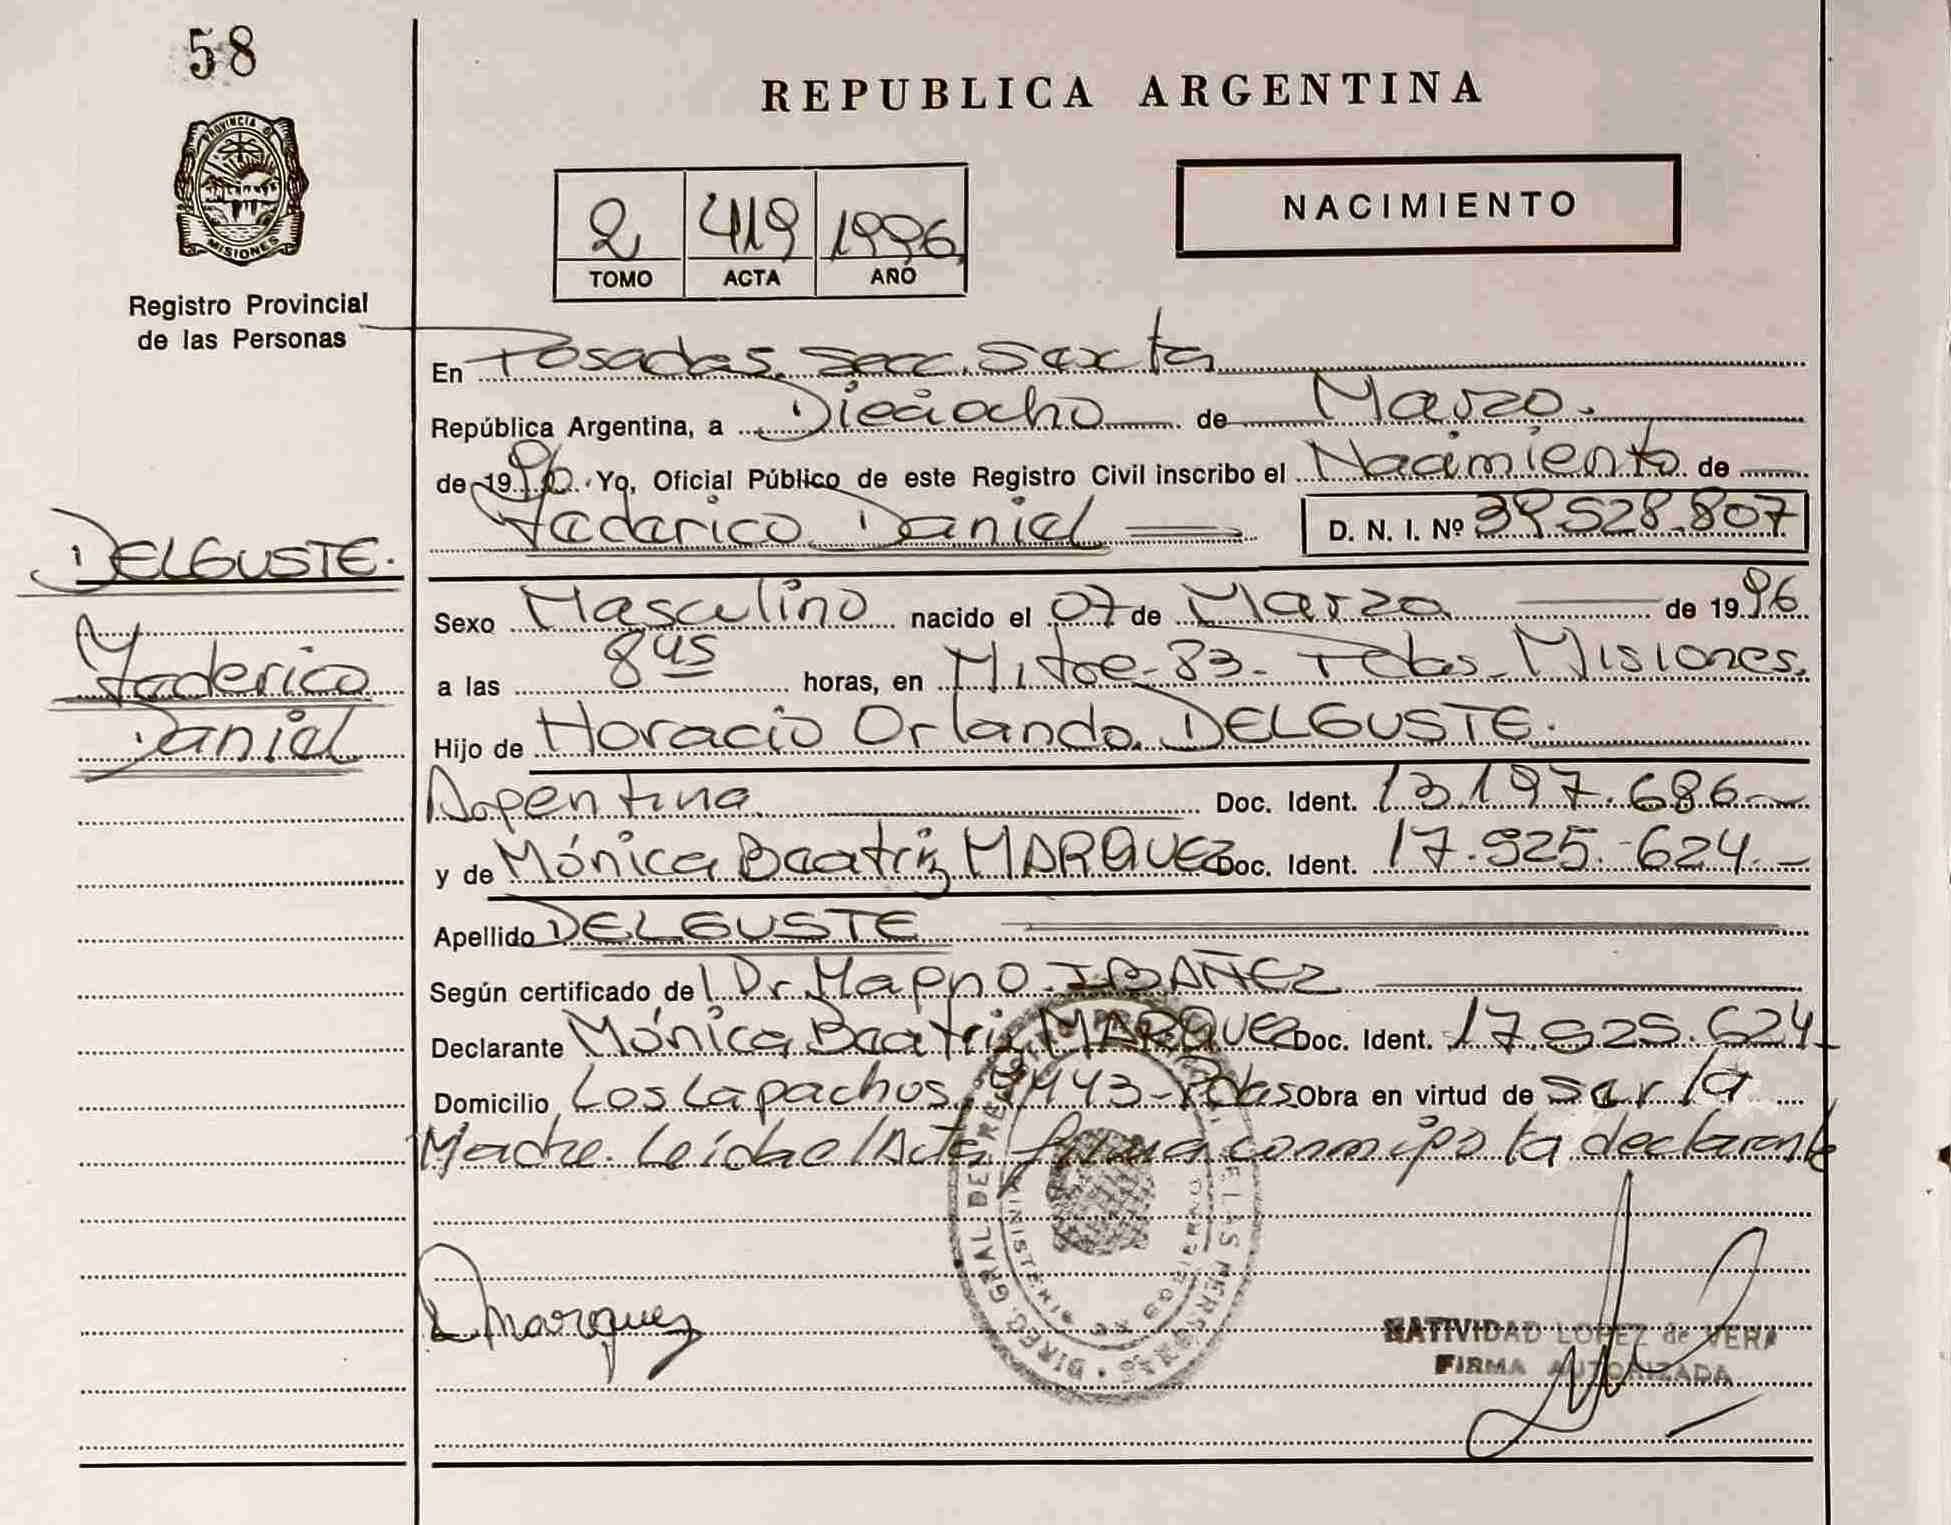 58
REPUBLICA ARGENTINA
PROVINCIA DE
MISIONES
Registro Provincial
de las Personas
2 419 1996
TOMO ACTA AÑO
NACIMIENTO
En Posadas. Secc. Sexta
República Argentina, a Dieciocho de Marzo.
de 1996. Yo, Oficial Público de este Registro Civil inscribo el Nacimiento de
Federico Daniel D. N. I. Nº 39.528.807
DELGUSTE.
Federico
Daniel
Sexo Masculino nacido el 07 de Marzo de 1996
a las 8 45 horas, en Mitre-83- Pdas- Misiones.
Hijo de Horacio Orlando DELGUSTE.
Argentina Doc. Ident. 13.197.686-
y de Mónica Beatriz MARQUEZ Doc. Ident. 17.925.624.-
Apellido DELGUSTE
Según certificado del Dr. Magno IBAÑEZ
Declarante Mónica Beatriz MARQUEZ Doc. Ident. 17.925.624-
Domicilio Los Lapachos 4443-Pdas Obra en virtud de ser la
Madre. Leída el Acta firma conmigo la declarante
DIREC. GRAL DEL REG.
Marquez
NATIVIDAD LOPEZ de VERA
FIRMA AUTORIZADA